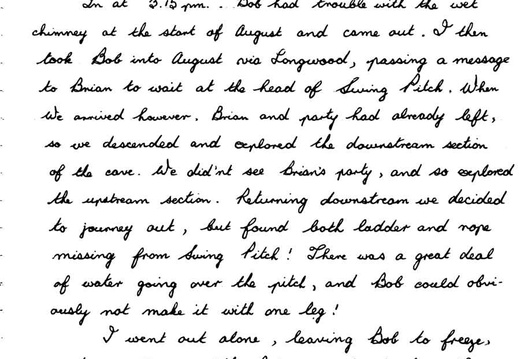 In at 5.15 pm. . Bob had trouble with the wet
chimney at the start of August and came out. I then
took Bob into August via Longwood, passing a message
to Brian to wait at the head of Swing Pitch. When
we arrived however. Brian and party had already left,
so we descended and explored the downstream section
of the cave. We did'nt see Brian's party, and so explored
the upstream section. Returning downstream we decided
to journey out, but found both ladder and rope
missing from Swing Pitch! There was a great deal
of water going over the pitch, and Bob could obvi-
ously not make it with one leg!
I went out alone, leaving Bob to freeze,